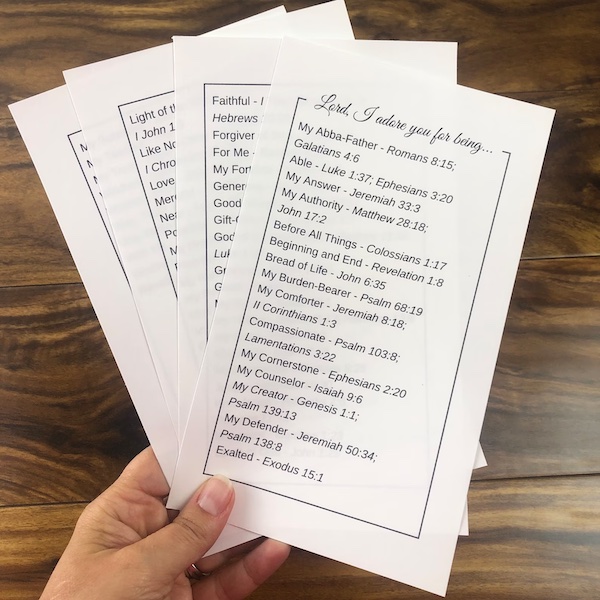 Lord, I adore you for being...
My Abba-Father - Romans 8:15;
Galatians 4:6
Able - Luke 1:37; Ephesians 3:20
My Answer - Jeremiah 33:3
My Authority - Matthew 28:18;
John 17:2
Before All Things - Colossians 1:17
Beginning and End - Revelation 1:8
Bread of Life - John 6:35
My Burden-Bearer - Psalm 68:19
My Comforter - Jeremiah 8:18;
II Corinthians 1:3
Compassionate - Psalm 103:8;
Lamentations 3:22
My Cornerstone - Ephesians 2:20
My Counselor - Isaiah 9:6
My Creator - Genesis 1:1;
Psalm 139:13
My Defender - Jeremiah 50:34;
Psalm 138:8
Exalted - Exodus 15:1
Faithful - I
Hebrews
Forgiver
For Me -
My Fort
Gener
Good
Gift-
God
Luk
Light of th
I John 1
Like No
I Chro
Love